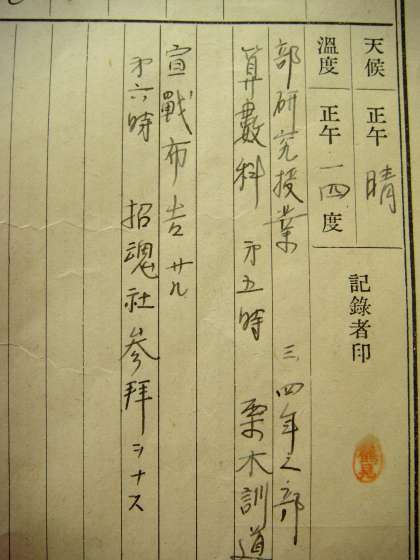 天候 正午 晴
溫度 正午 一四度
記錄者印
鶴見
部研究授業 三、四年之部
算數科 才五時 栗木訓道
宣戰布告サル
才六時 招魂社參拜ヲナス